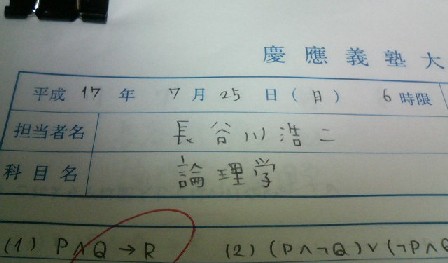 慶應義塾大
平成 17 年 7 月 25 日 (日) 6 時限
担当者名 長谷川浩二
科目名 論理学
(1) P∧Q → R (2) (P∧¬Q)∨(¬P∧Q